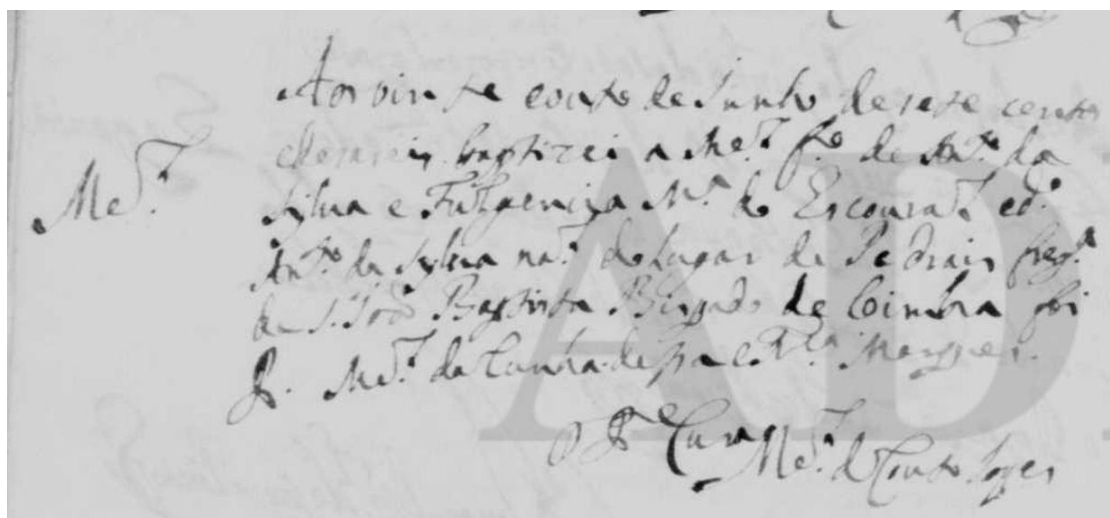 Aos vinte e outo de Junho de sete centos
e dezaseis baptizei a Me.l f.o de An.to da
Sylva e Fulgencia M.a do Escoural e o d.o
An.to da Sylva na.l do Lugar de Pedrais freg.a
Me.l
de S. João Baptista Bispado de Coimbra foi
P. Me.l da Cunha de Marques.
O P.e Cura Me.l do Couto Lopes
AD